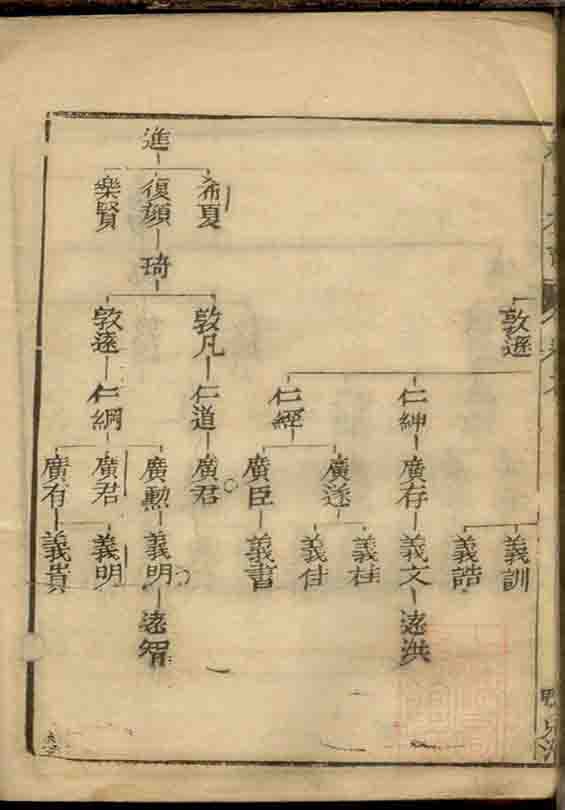 進
希夏
復顏
樂賢
琦
敦遜
敦凡
敦遠
仁紳
仁經
仁道
仁綱
廣存
廣遂
廣臣
廣君
廣勲
廣君
廣有
義訓
義誥
義文
義桂
義佳
義書
義明
義明
義貴
遠洪